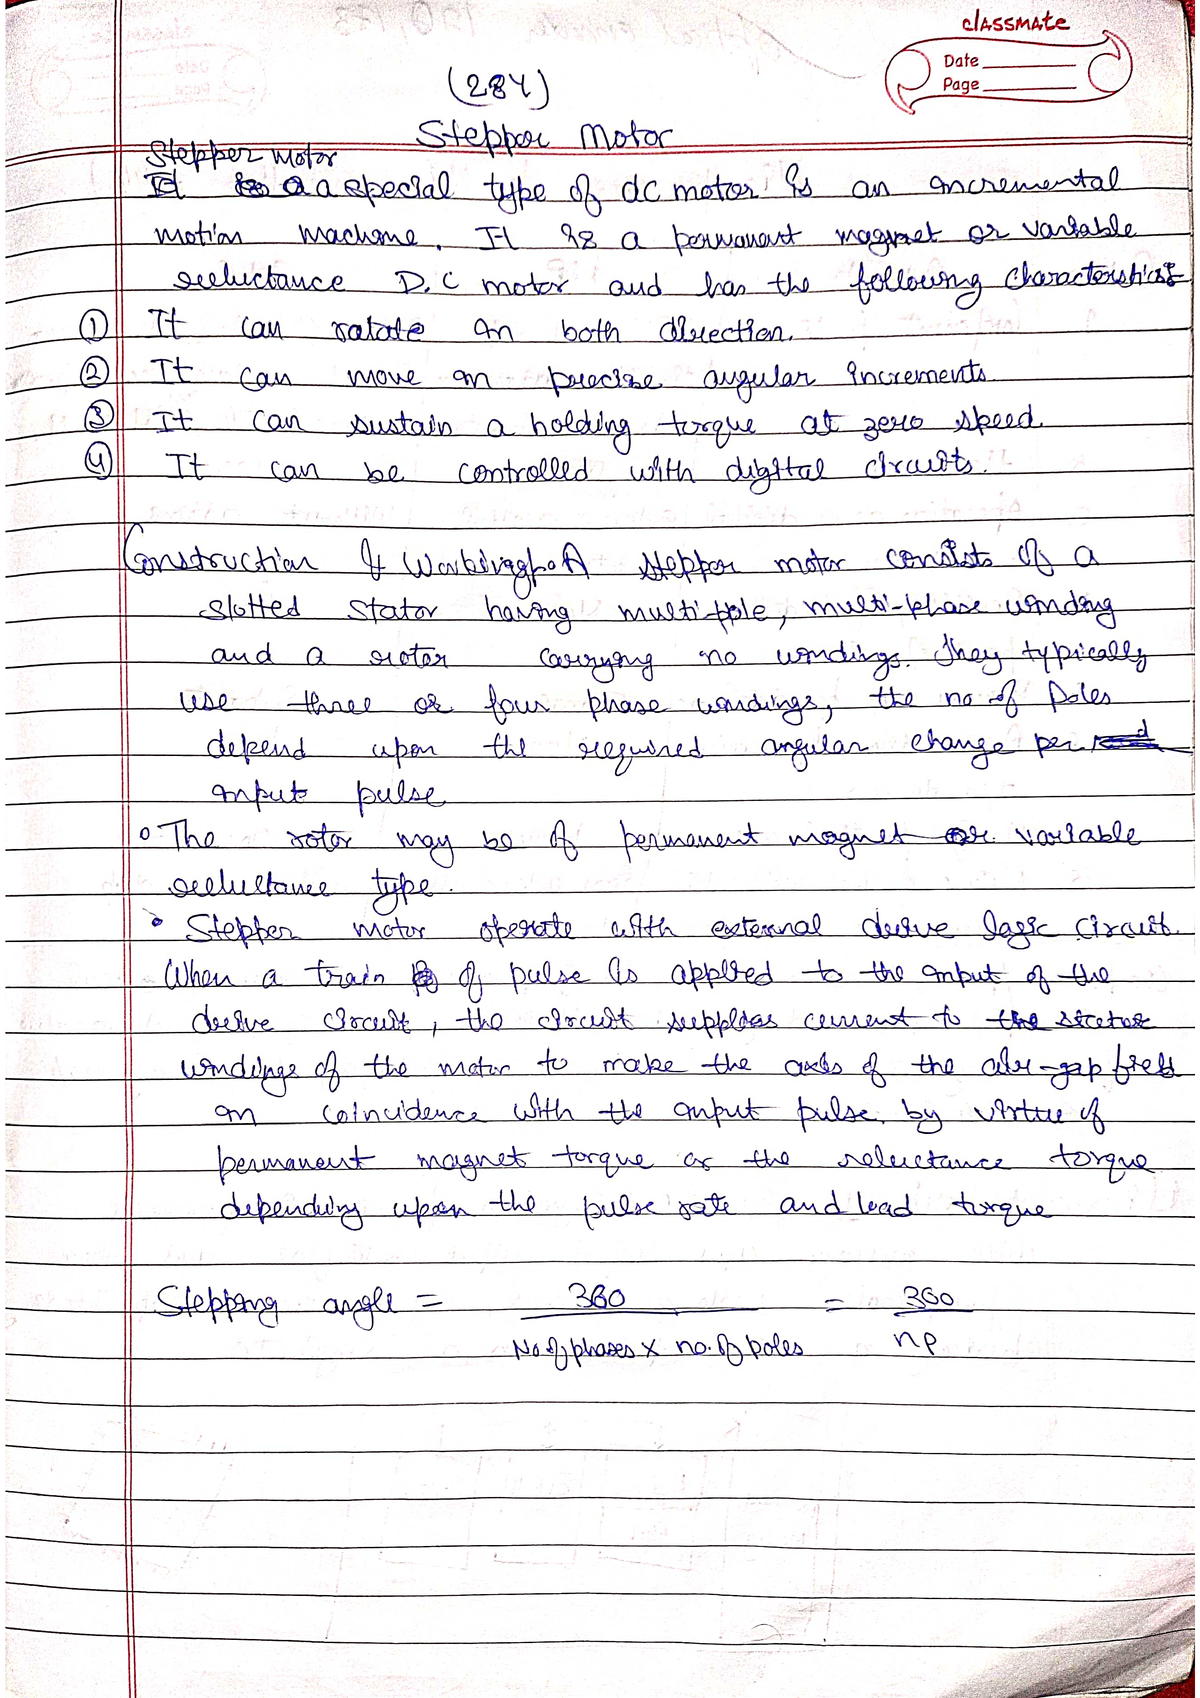 classmate
Date
Page
(284)
Stepper Motor
Stepper motor
a special type of dc motor is an incremental
motion machine. It is a permanent magnet or variable
reluctance D.C motor and has the following characteristics
① It can rotate in both direction.
② It can move in precise angular increments
③ It can sustain a holding torque at zero speed.
④ It can be controlled with digital circuits.
Construction & Working A stepper motor consists of a
slotted stator having multi-pole, multi-phase winding
and a rotor carrying no windings. They typically
use three or four phase windings, the no of Poles
depend upon the required angular change per
input pulse
The rotor may be of permanent magnet or variable
reluctance type.
Stepper motor operate with external drive logic circuit.
When a train of pulse is applied to the input of the
drive circuit, the circuit supplies current to the stator
windings of the motor to make the axis of the air-gap field
in coincidence with the input pulse. by virtue of
permanent magnet torque or the reluctance torque
depending upon the pulse rate and load torque
Stepping angle = 360 = 360
No of phases x no. of poles np